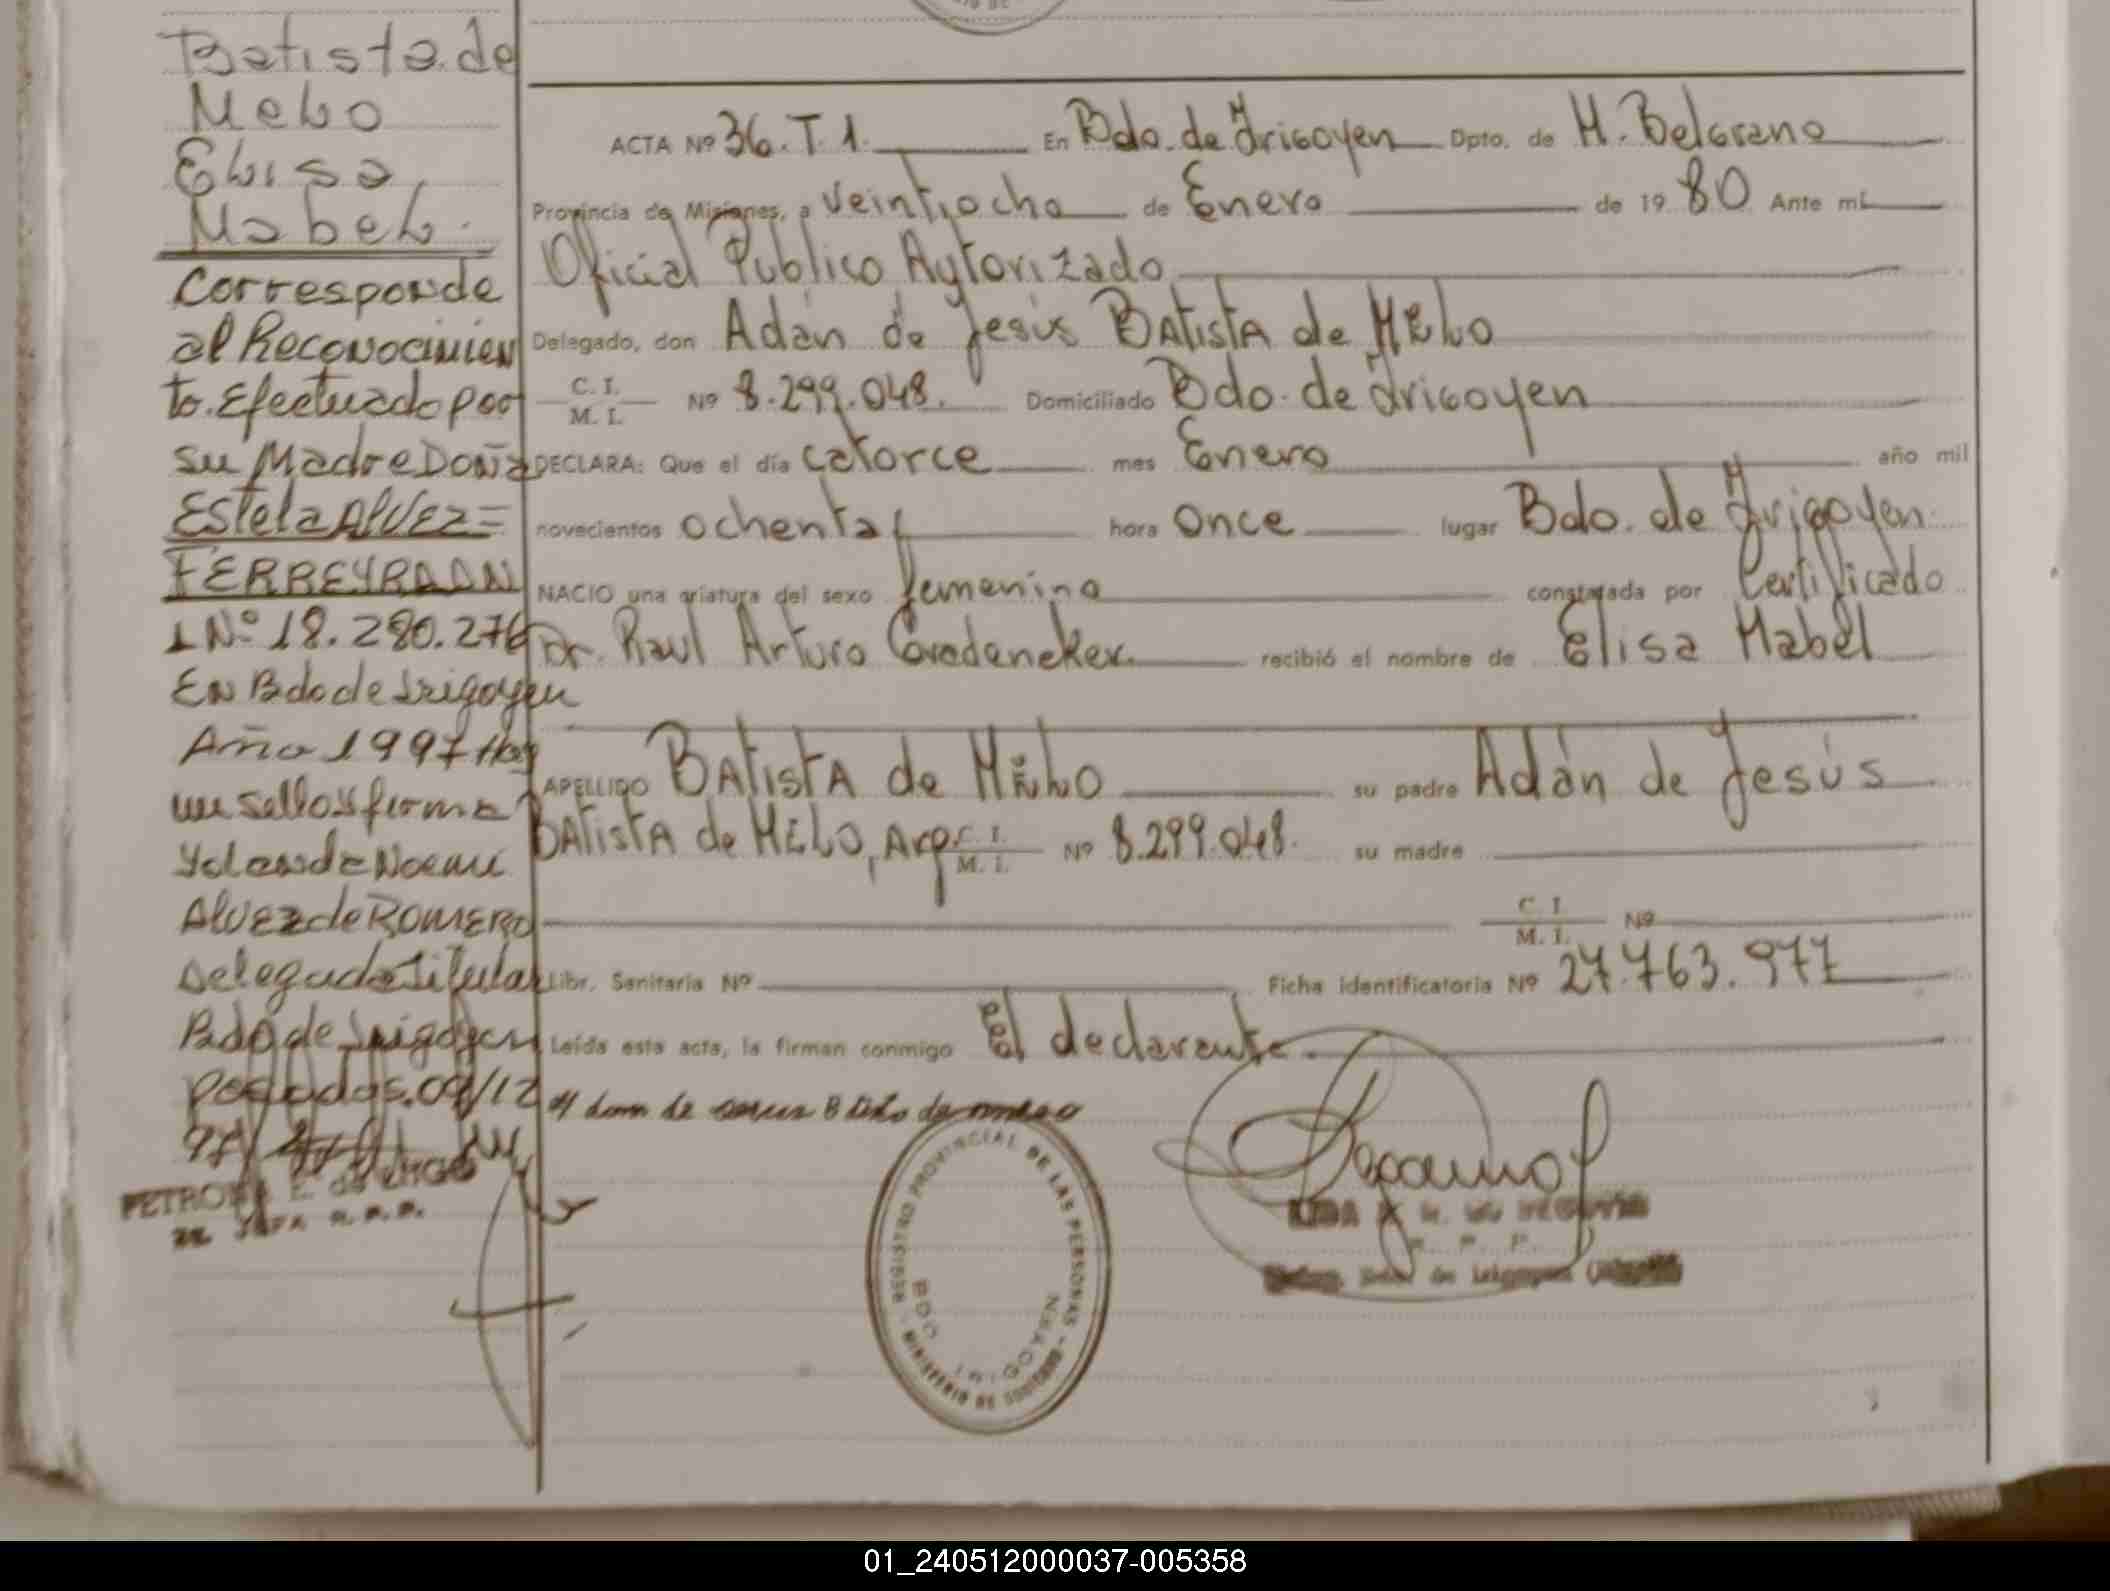 Batista de
Melo
Elisa
Mabel.
Corresponde
al Reconocimien
to. Efectuado por
su Madre Doña
Estela Alvez=
FERREYRA DN
I Nº 18.280.276
En Bdo de Irigoyen
Año 1997 Hay
un sello y firma
Yolanda Noemi
Alvez de ROMERO
Delegada Titular
Bdo de Irigoyen
Posadas. 09/12
97/
PETRONA E. de
ACTA Nº 36. T. 1. En Bdo. de Irigoyen Dpto. de M. Belgrano
Provincia de Misiones, a veintiocho de Enero de 19 80 Ante mi
Oficial Publico Autorizado
Delegado, don Adán de Jesús BAtistA de MELO
C. I.
M. I. Nº 8.299.048. Domiciliado Bdo. de Irigoyen
DECLARA: Que el día catorce mes Enero año mil
novecientos ochenta hora once lugar Bdo. de Irigoyen
NACIO una criatura del sexo femenino constatada por Certificado
Dr. Raul Arturo recibió el nombre de Elisa Mabel
APELLIDO BAtistA de MELO su padre Adán de Jesús
BAtistA de MELO, Arg. C. I.
M. I. Nº 8.299.048. su madre
C. I.
M. I. Nº
Libr. Sanitaria Nº Ficha identificatoria Nº 27.763.977
Leída esta acta, la firman conmigo El declarante.
REGISTRO PROVINCIAL DE LAS PERSONAS - MINISTERIO DE GOBIERNO
BDO. IRIGOYEN
01_240512000037-005358